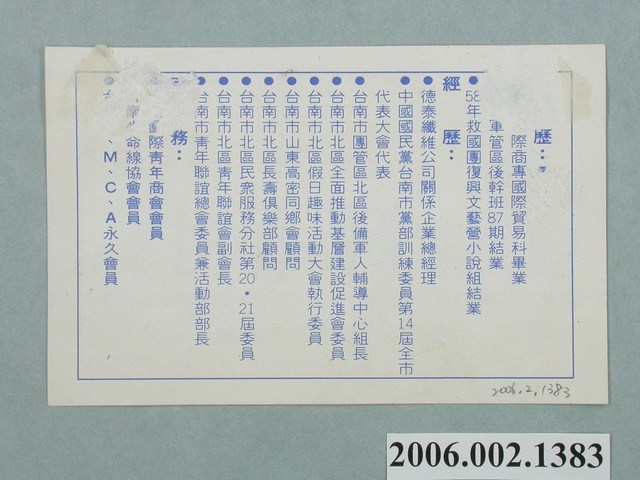 歷：
際商專國際貿易科畢業
軍管區後幹班87期結業
●58年救國團復興文藝營小說組結業
經歷：
●德泰纖維公司關係企業總經理
●中國國民黨台南市黨部訓練委員第14屆全市
代表大會代表
●台南市團管區北區後備軍人輔導中心組長
●台南市北區全面推動基層建設促進會委員
●台南市北區假日趣味活動大會執行委員
●台南市山東高密同鄉會顧問
●台南市北區長壽俱樂部顧問
●台南市北區民衆服務分社第20·21屆委員
●台南市北區青年聯誼會副會長
●台南市青年聯誼總會委員兼活動部部長
務：
際青年商會會員
命線協會會員
、M、C、A永久會員
2006.2.1383
2006.002.1383